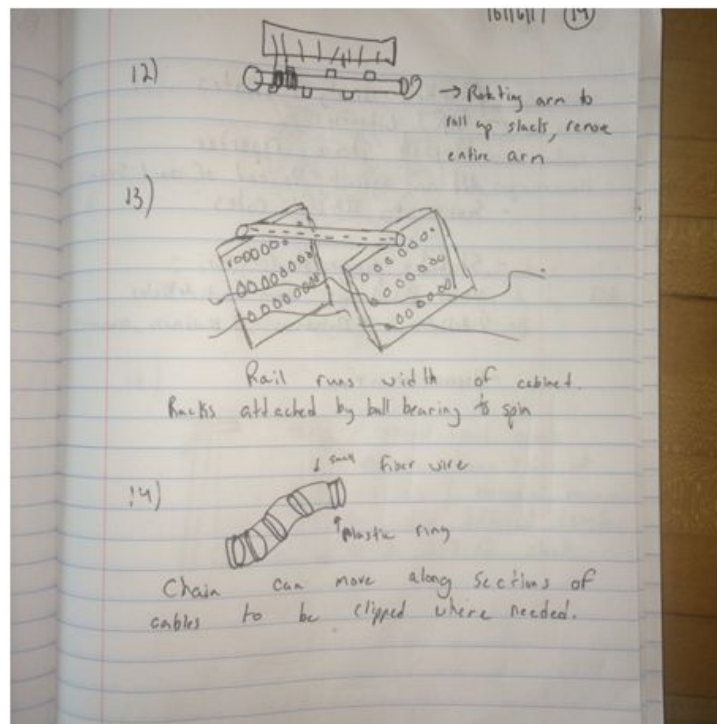 14
12)
→ Rotating arm to
roll up slacks, remove
entire arm
13)
Rail runs width of cabinet.
Racks attached by ball bearing to spin
↓ fiber wire
14)
↑ plastic ring
Chain can move along sections of
cables to be clipped where needed.